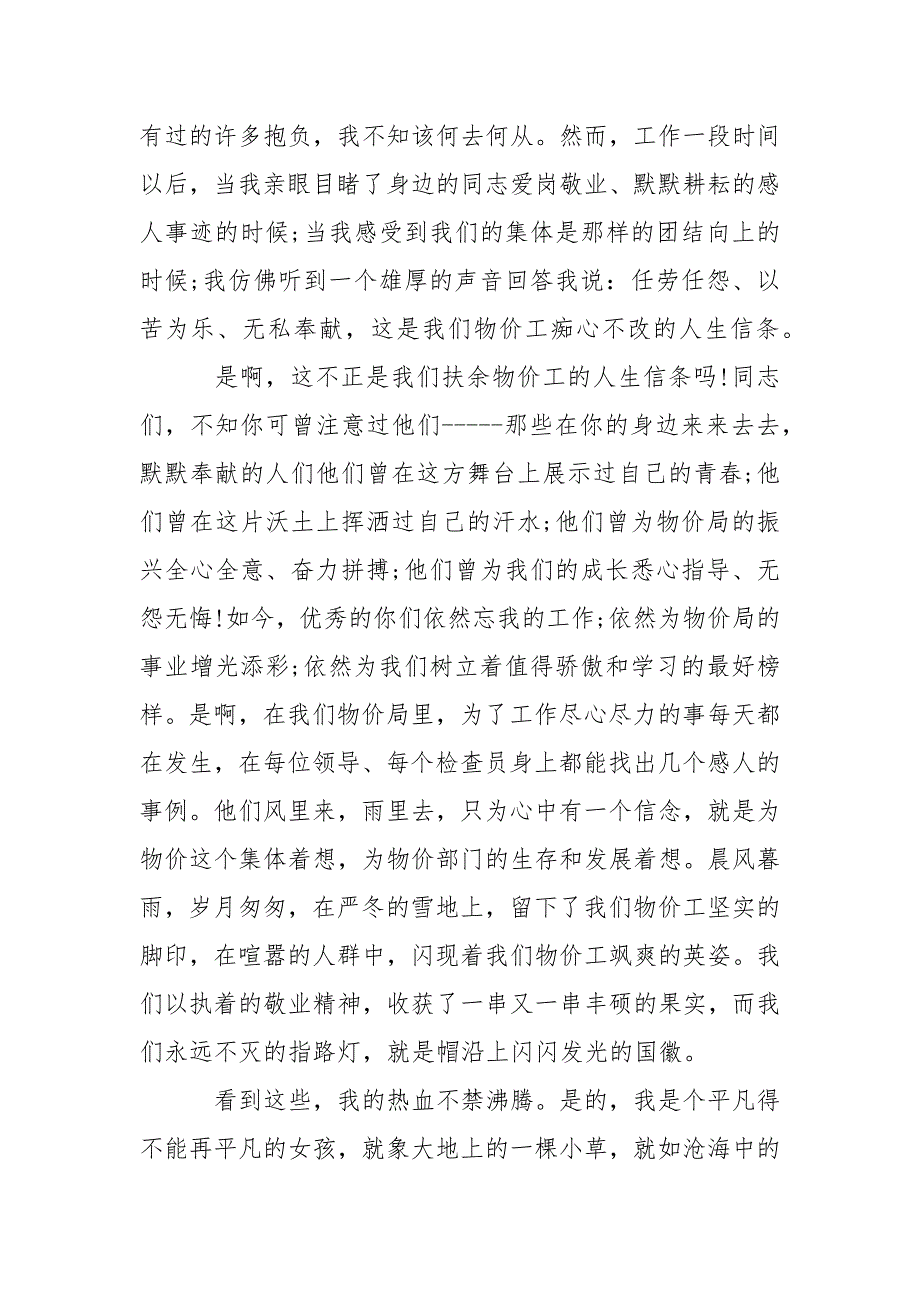 有过的许多抱负，我不知该何去何从。然而，工作一段时间
以后，当我亲眼目睹了身边的同志爱岗敬业、默默耕耘的感
人事迹的时候;当我感受到我们的集体是那样的团结向上的
时候;我仿佛听到一个雄厚的声音回答我说：任劳任怨、以
苦为乐、无私奉献，这是我们物价工痴心不改的人生信条。
是啊，这不正是我们扶余物价工的人生信条吗!同志
们，不知你可曾注意过他们-----那些在你的身边来来去去，
默默奉献的人们他们曾在这方舞台上展示过自己的青春;他
们曾在这片沃土上挥洒过自己的汗水;他们曾为物价局的振
兴全心全意、奋力拼搏;他们曾为我们的成长悉心指导、无
怨无悔!如今，优秀的你们依然忘我的工作;依然为物价局的
事业增光添彩;依然为我们树立着值得骄傲和学习的最好榜
样。是啊，在我们物价局里，为了工作尽心尽力的事每天都
在发生，在每位领导、每个检查员身上都能找出几个感人的
事例。他们风里来，雨里去，只为心中有一个信念，就是为
物价这个集体着想，为物价部门的生存和发展着想。晨风暮
雨，岁月匆匆，在严冬的雪地上，留下了我们物价工坚实的
脚印，在喧嚣的人群中，闪现着我们物价工飒爽的英姿。我
们以执着的敬业精神，收获了一串又一串丰硕的果实，而我
们永远不灭的指路灯，就是帽沿上闪闪发光的国徽。
看到这些，我的热血不禁沸腾。是的，我是个平凡得
不能再平凡的女孩，就象大地上的一棵小草，就如沧海中的